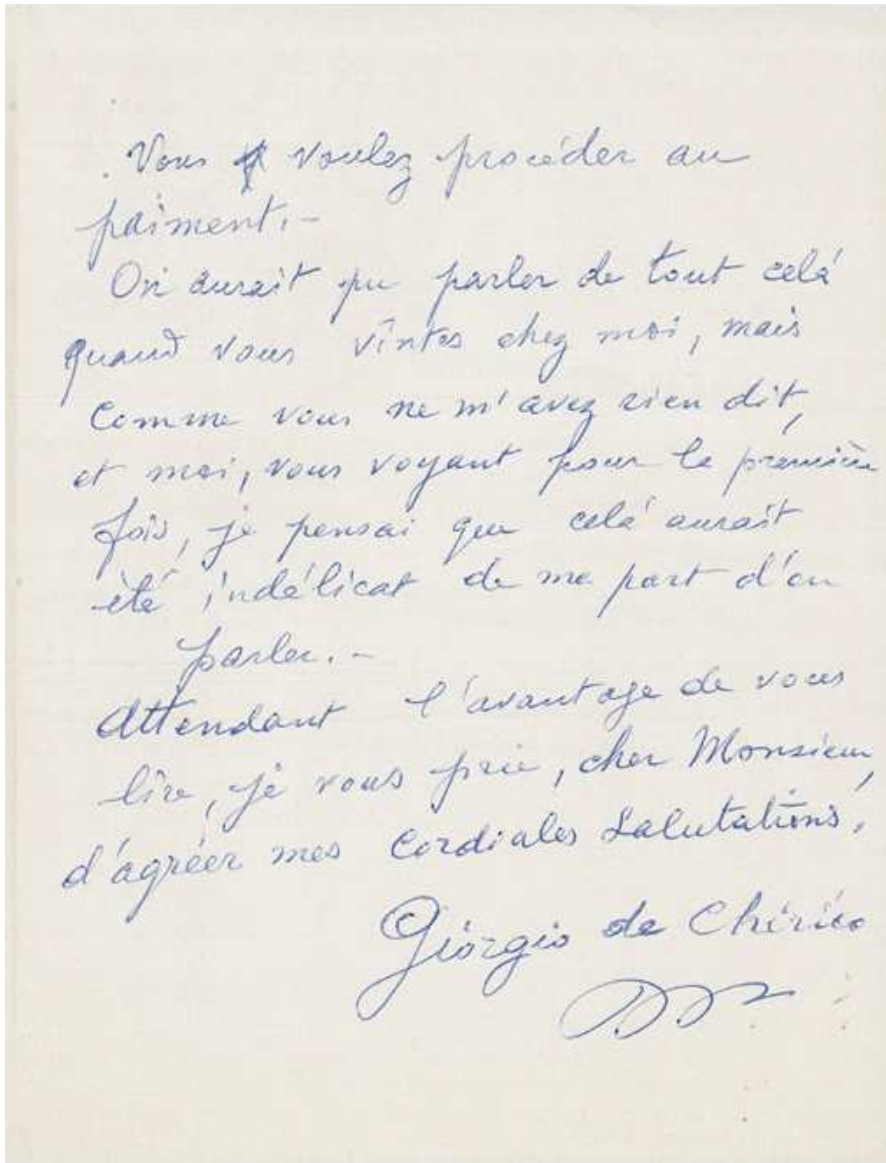 Vous voulez procéder au
paiment.-
On aurait pu parler de tout celà
quand vous vîntes chez moi, mais
comme vous ne m'avez rien dit,
et moi, vous voyant pour la première
fois, je pensai que celà aurait
èté indélicat de me part d'en
parler.-
Attendant l'avantage de vous
lire, je vous prie, cher Monsieur,
d'agréer mes cordiales salutations,
Giorgio de Chirico